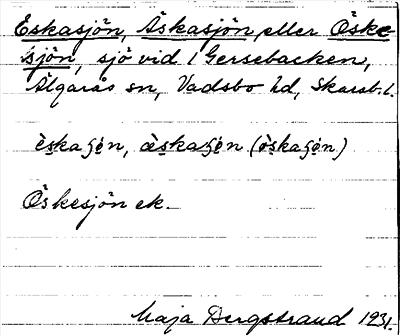 Eskasjön, Äskasjön eller Öske-
sjön, sjö vid 1 Gersebacken,
Älgarås sn, Vadsbo hd, Skarab. l.
èskaʃø̣n, æ̀skaʃø̣n (ö̀skaʃø̣n)
Öskesjön ek.
Maja Bergstrand 1931.